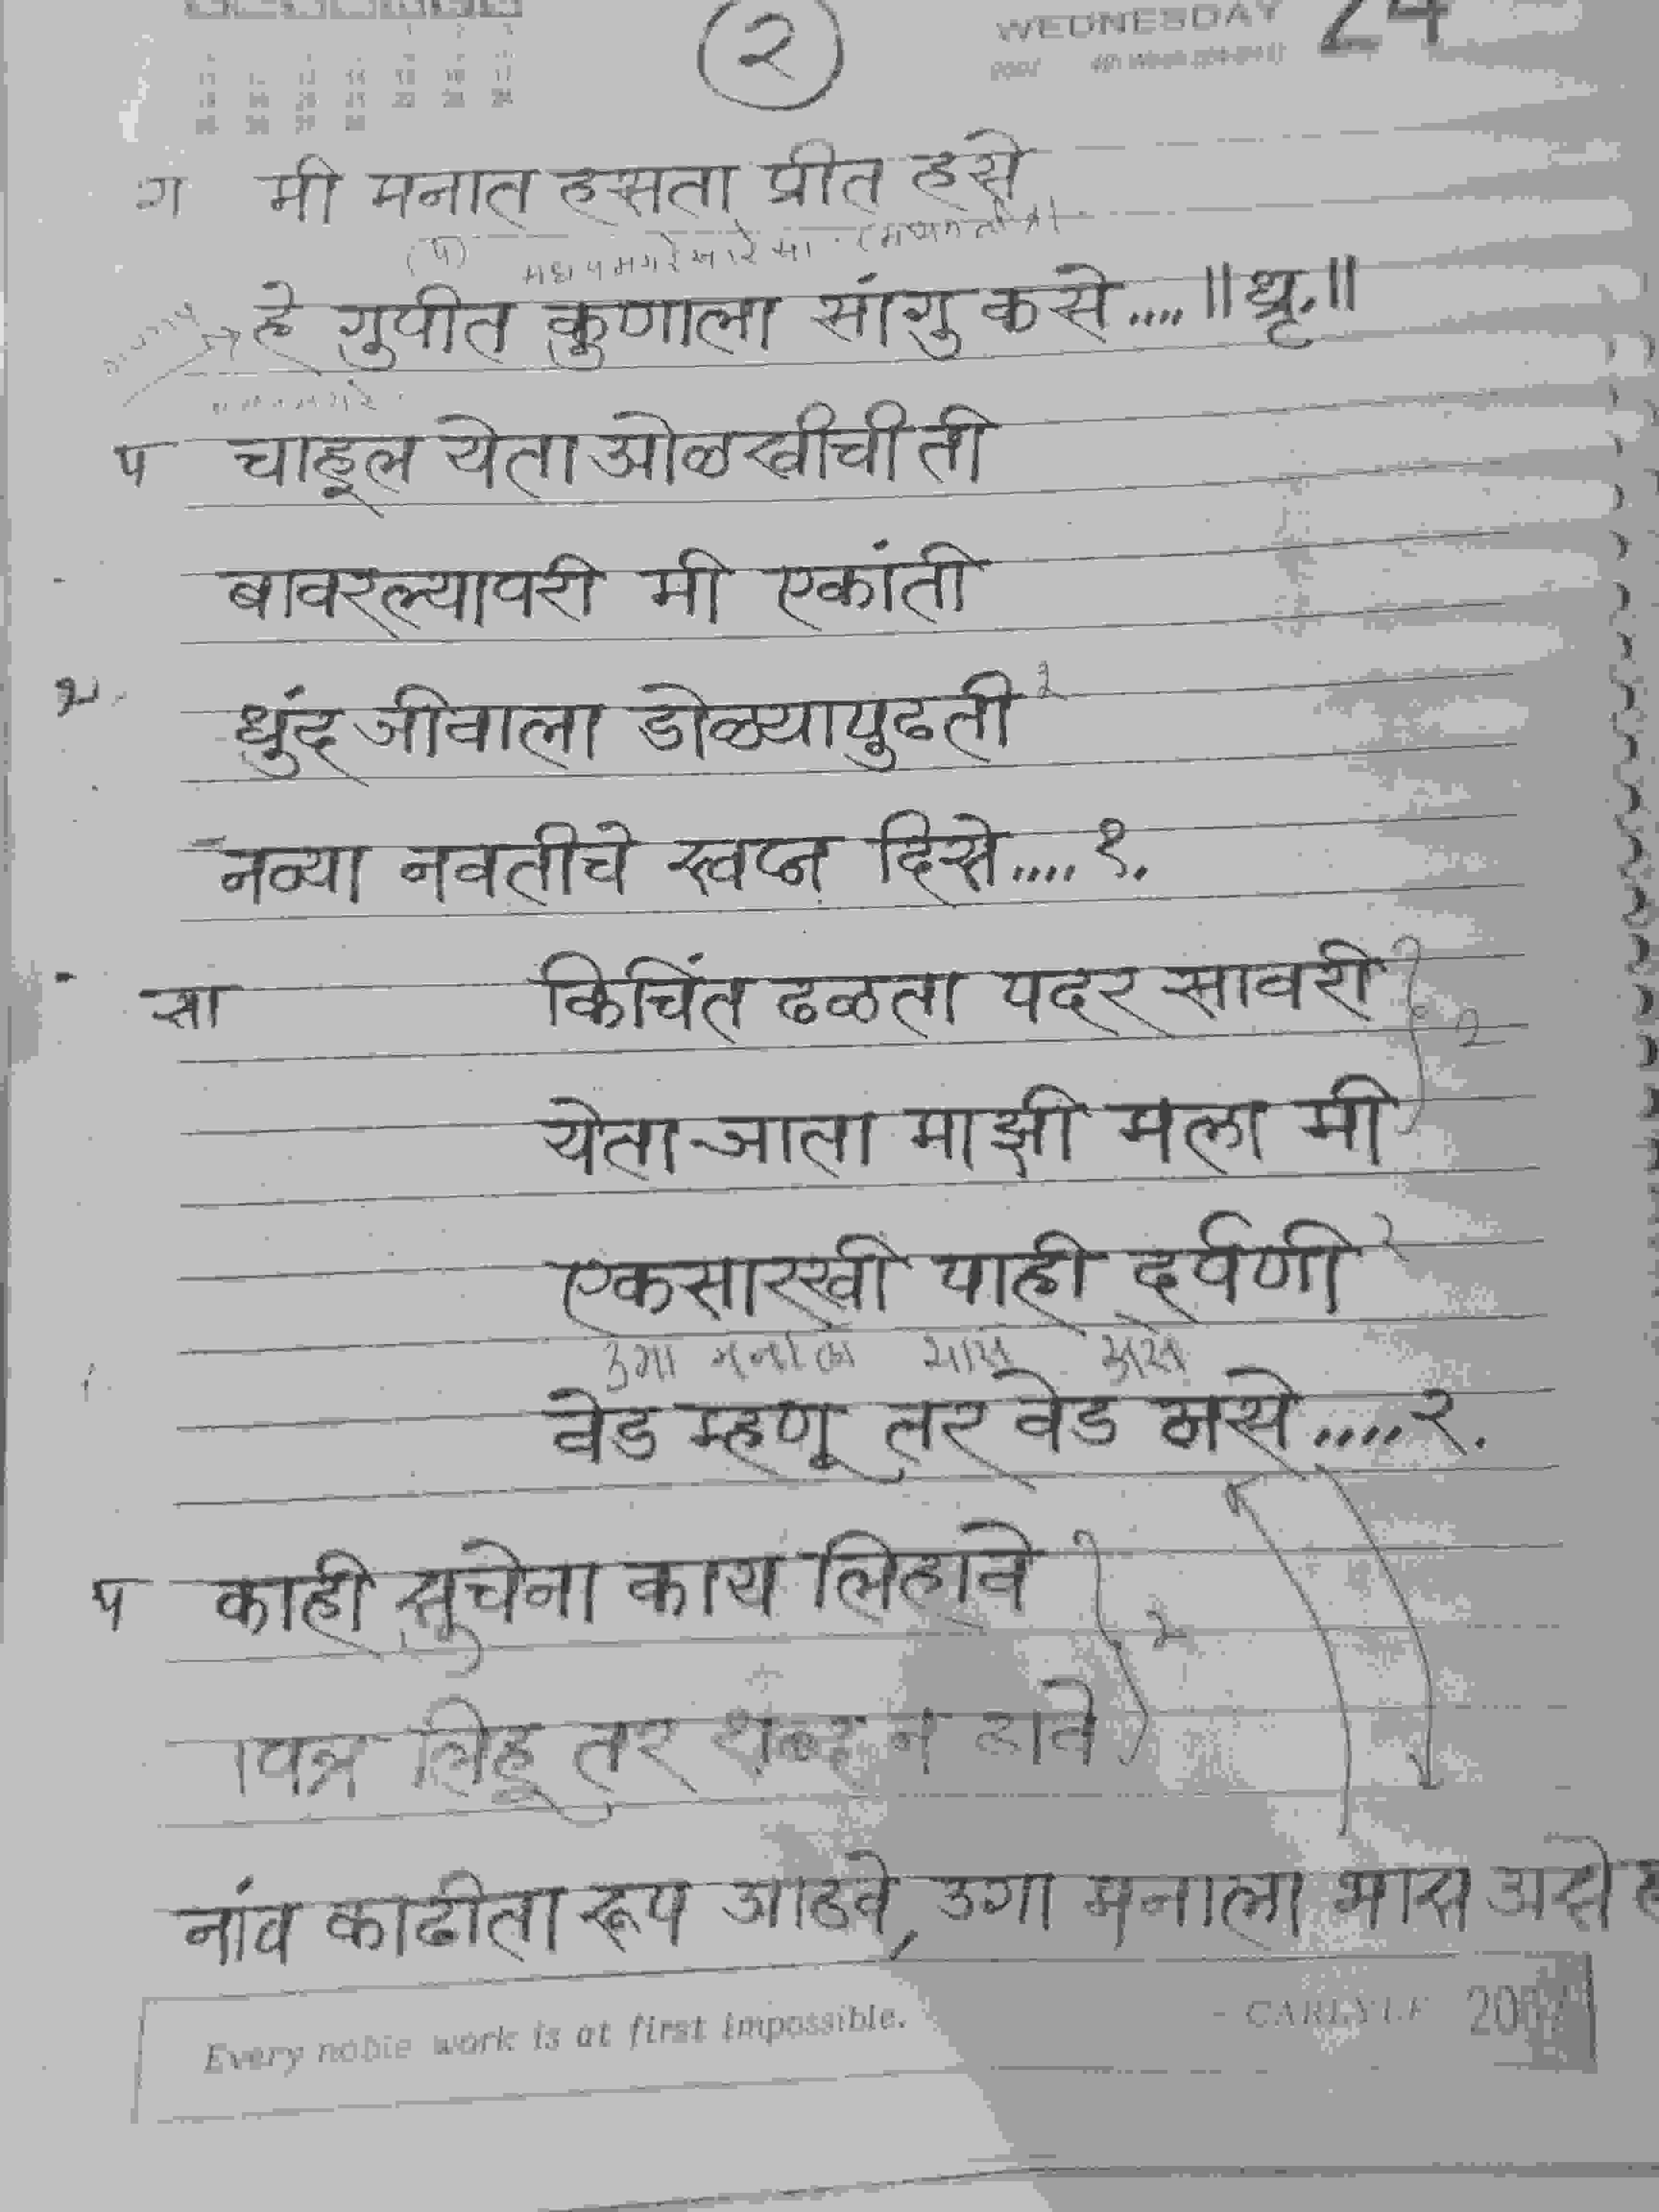 २
WEDNESDAY 24
ग मी मनात हसता प्रीत हसे
(प)
हे गुपीत कुणाला सांगु कसे.... ||धृ.||
प चाहूल येता ओळखीची ती
बावरल्यापरी मी एकांती
धुंद जीवाला डोळ्यापुढती २
नव्या नवतीचे स्वप्न दिसे.... १.
सा किचिंत ढळता पदर सावरी
२
येता-जाता माझी मला मी
एकसारखी पाही दर्पणी २
उगा मनाला भास असे
वेड म्हणू तर वेड नसे.... २.
प काही सुचेना काय लिहावे
२
पत्र लिहू तर शब्द न ठावे
नांव काढीता रूप आठवे, उगा मनाला भास असे
Every noble work is at first impossible.
- CARLYLE 2007